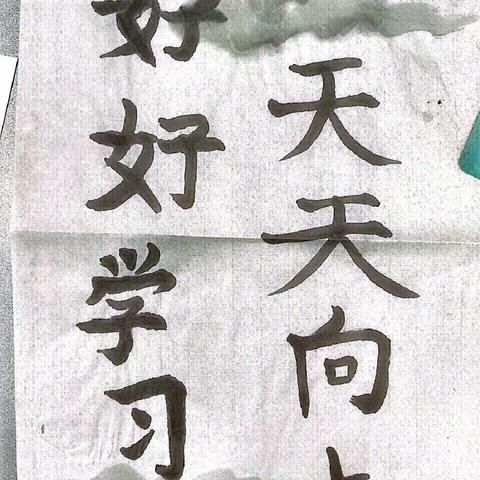 好好学习
天天向